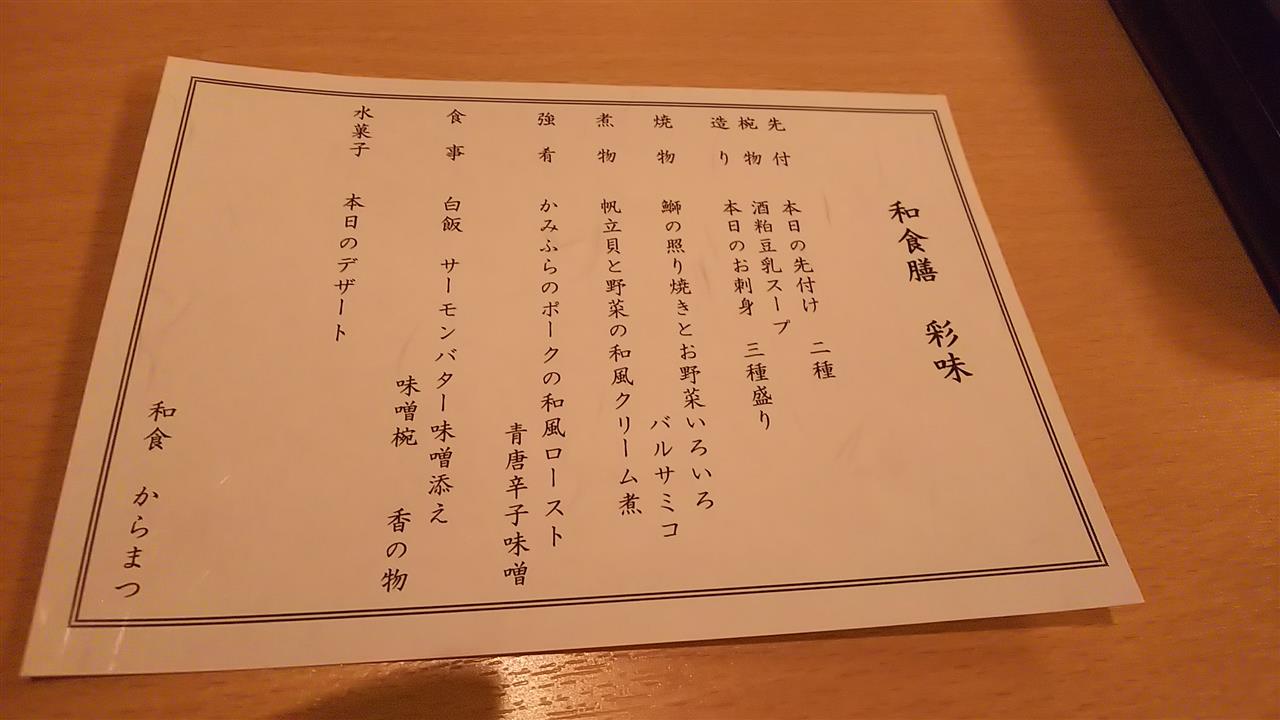 和食膳 彩味
先付 本日の先付け 二種
椀物 酒粕豆乳スープ
造り 本日のお刺身 三種盛り
焼物 鰤の照り焼きとお野菜いろいろ
バルサミコ
煮物 帆立貝と野菜の和風クリーム煮
強肴 かみふらのポークの和風ロースト
青唐辛子味噌
食事 白飯 サーモンバター味噌添え
味噌椀 香の物
水菓子 本日のデザート
和食 からまつ